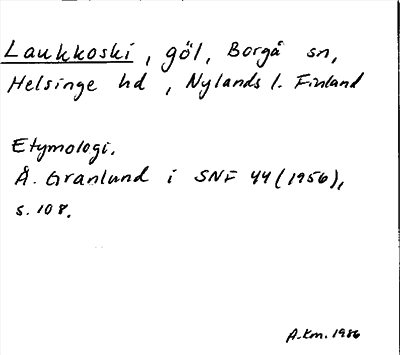 Laukkoski, göl, Borgå sn,
Helsinge hd, Nylands l. Finland
Etymologi.
Å. Granlund i SNF 44 (1956),
s. 108.
A.Km. 1986